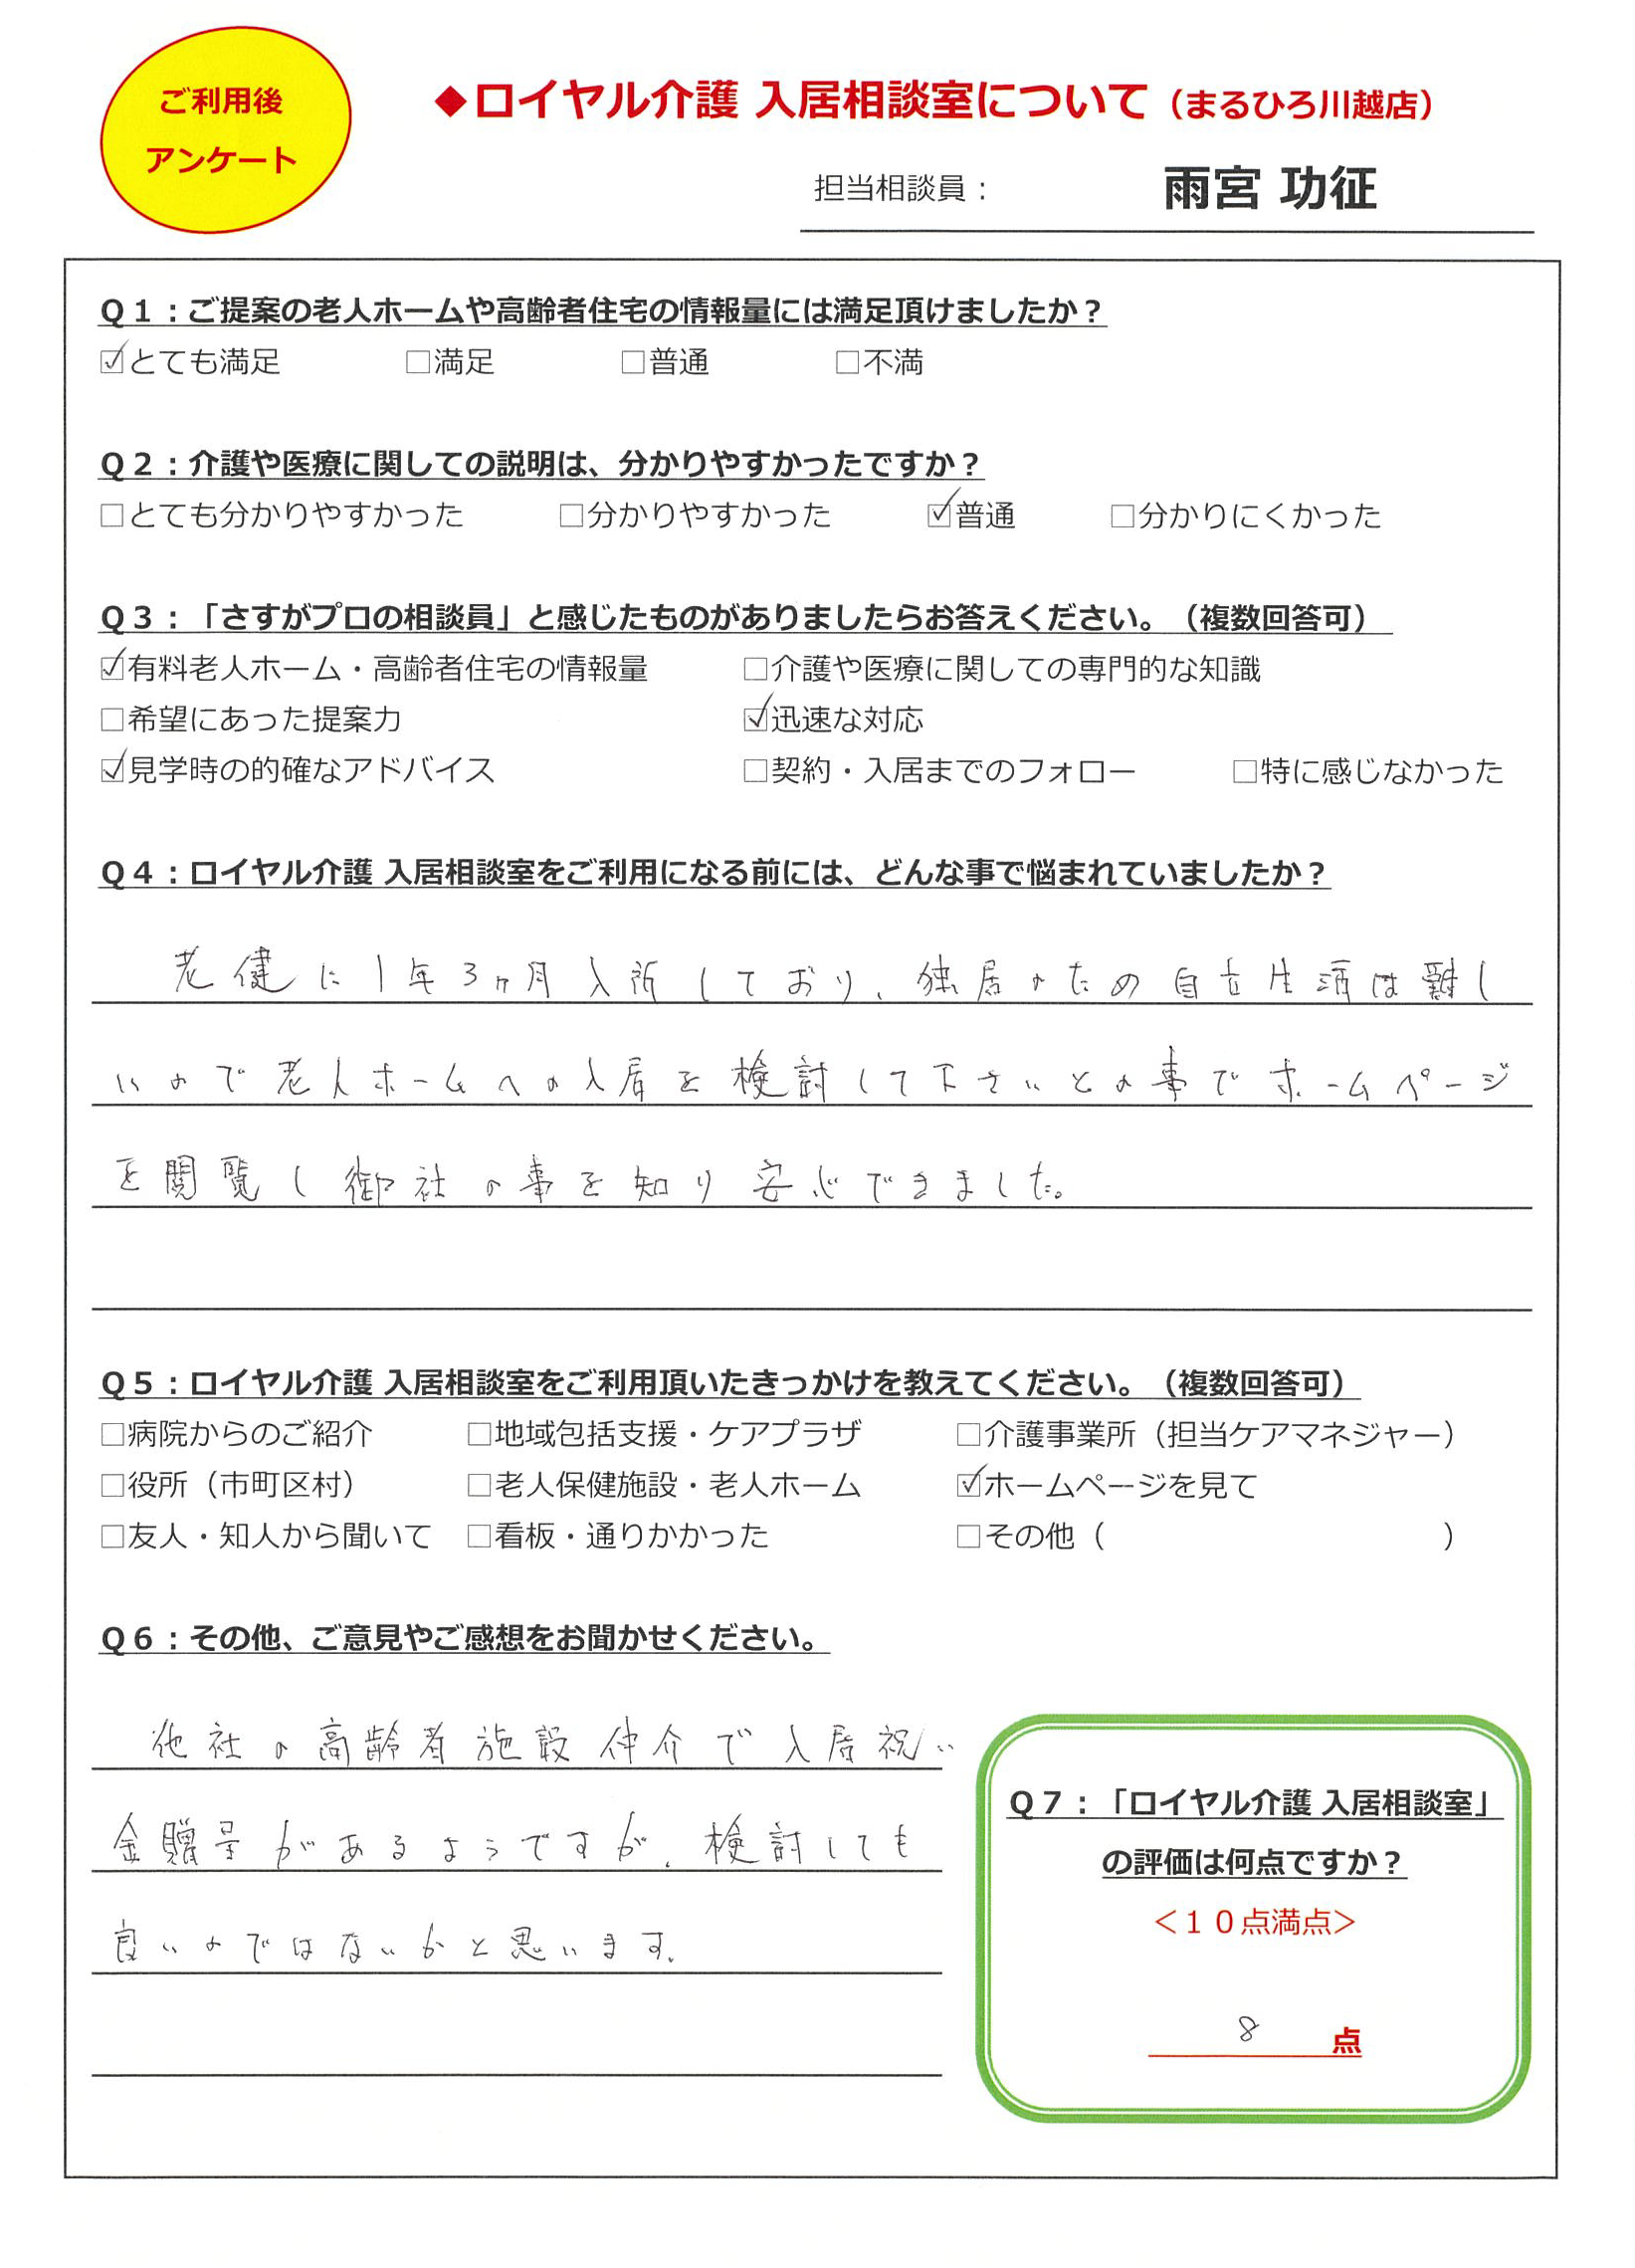 ご利用後
アンケート
◆ロイヤル介護 入居相談室について（まるひろ川越店）
担当相談員： 雨宮 功征
Q１：ご提案の老人ホームや高齢者住宅の情報量には満足頂けましたか？
☑とても満足 □満足 □普通 □不満
Q２：介護や医療に関しての説明は、分かりやすかったですか？
□とても分かりやすかった □分かりやすかった ☑普通 □分かりにくかった
Q３：「さすがプロの相談員」と感じたものがありましたらお答えください。（複数回答可）
☑有料老人ホーム・高齢者住宅の情報量 □介護や医療に関しての専門的な知識
□希望にあった提案力 ☑迅速な対応
☑見学時の的確なアドバイス □契約・入居までのフォロー □特に感じなかった
Q４：ロイヤル介護 入居相談室をご利用になる前には、どんな事で悩まれていましたか？
老健に1年3ヶ月入所しており、独居のための自立生活は難し
いので老人ホームへの入居を検討して下さいとの事でホームページ
を閲覧し御社の事を知り安心できました。
Q５：ロイヤル介護 入居相談室をご利用頂いたきっかけを教えてください。（複数回答可）
□病院からのご紹介 □地域包括支援・ケアプラザ □介護事業所（担当ケアマネジャー）
□役所（市町区村） □老人保健施設・老人ホーム ☑ホームページを見て
□友人・知人から聞いて □看板・通りかかった □その他（ ）
Q６：その他、ご意見やご感想をお聞かせください。
他社の高齢者施設仲介で入居祝い
金贈呈があるようですが、検討しても
良いのではないかと思います。
Q７：「ロイヤル介護 入居相談室」
の評価は何点ですか？
＜１０点満点＞
8 点